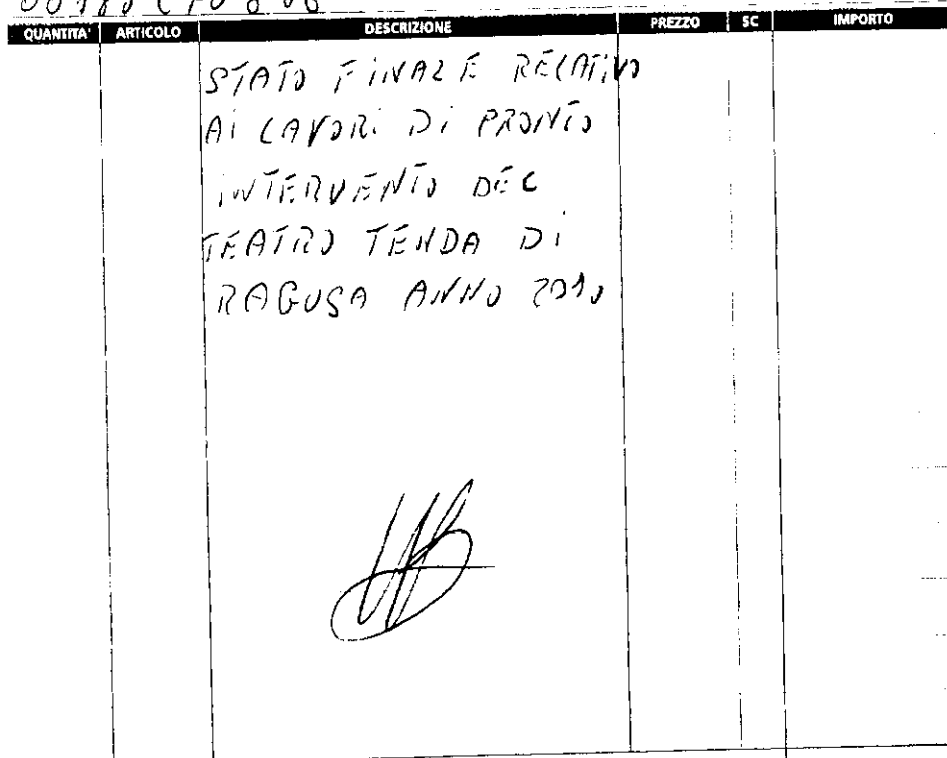 QUANTITA' ARTICOLO DESCRIZIONE PREZZO SC IMPORTO
STATO FINALE RELATIVO
AI LAVORI DI PRONTO
INTERVENTO DEL
TEATRO TENDA DI
RAGUSA ANNO 2010